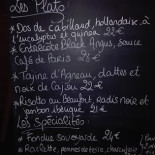 Les Plats
* Dos de cabillaud, hollandaise, à
l'eucalyptus et quinoa 22€
* Entrecôte Black Angus, Sauce
Café de Paris 28€
* Tajine d'Agneau, dattes et
noix de cajou 22€
* Risotto au Beaufort, radis noir et
21€
Les Spécialités:
* Fondue Savoyarde 24€
* Raclette, pommes de terre, charcuterie